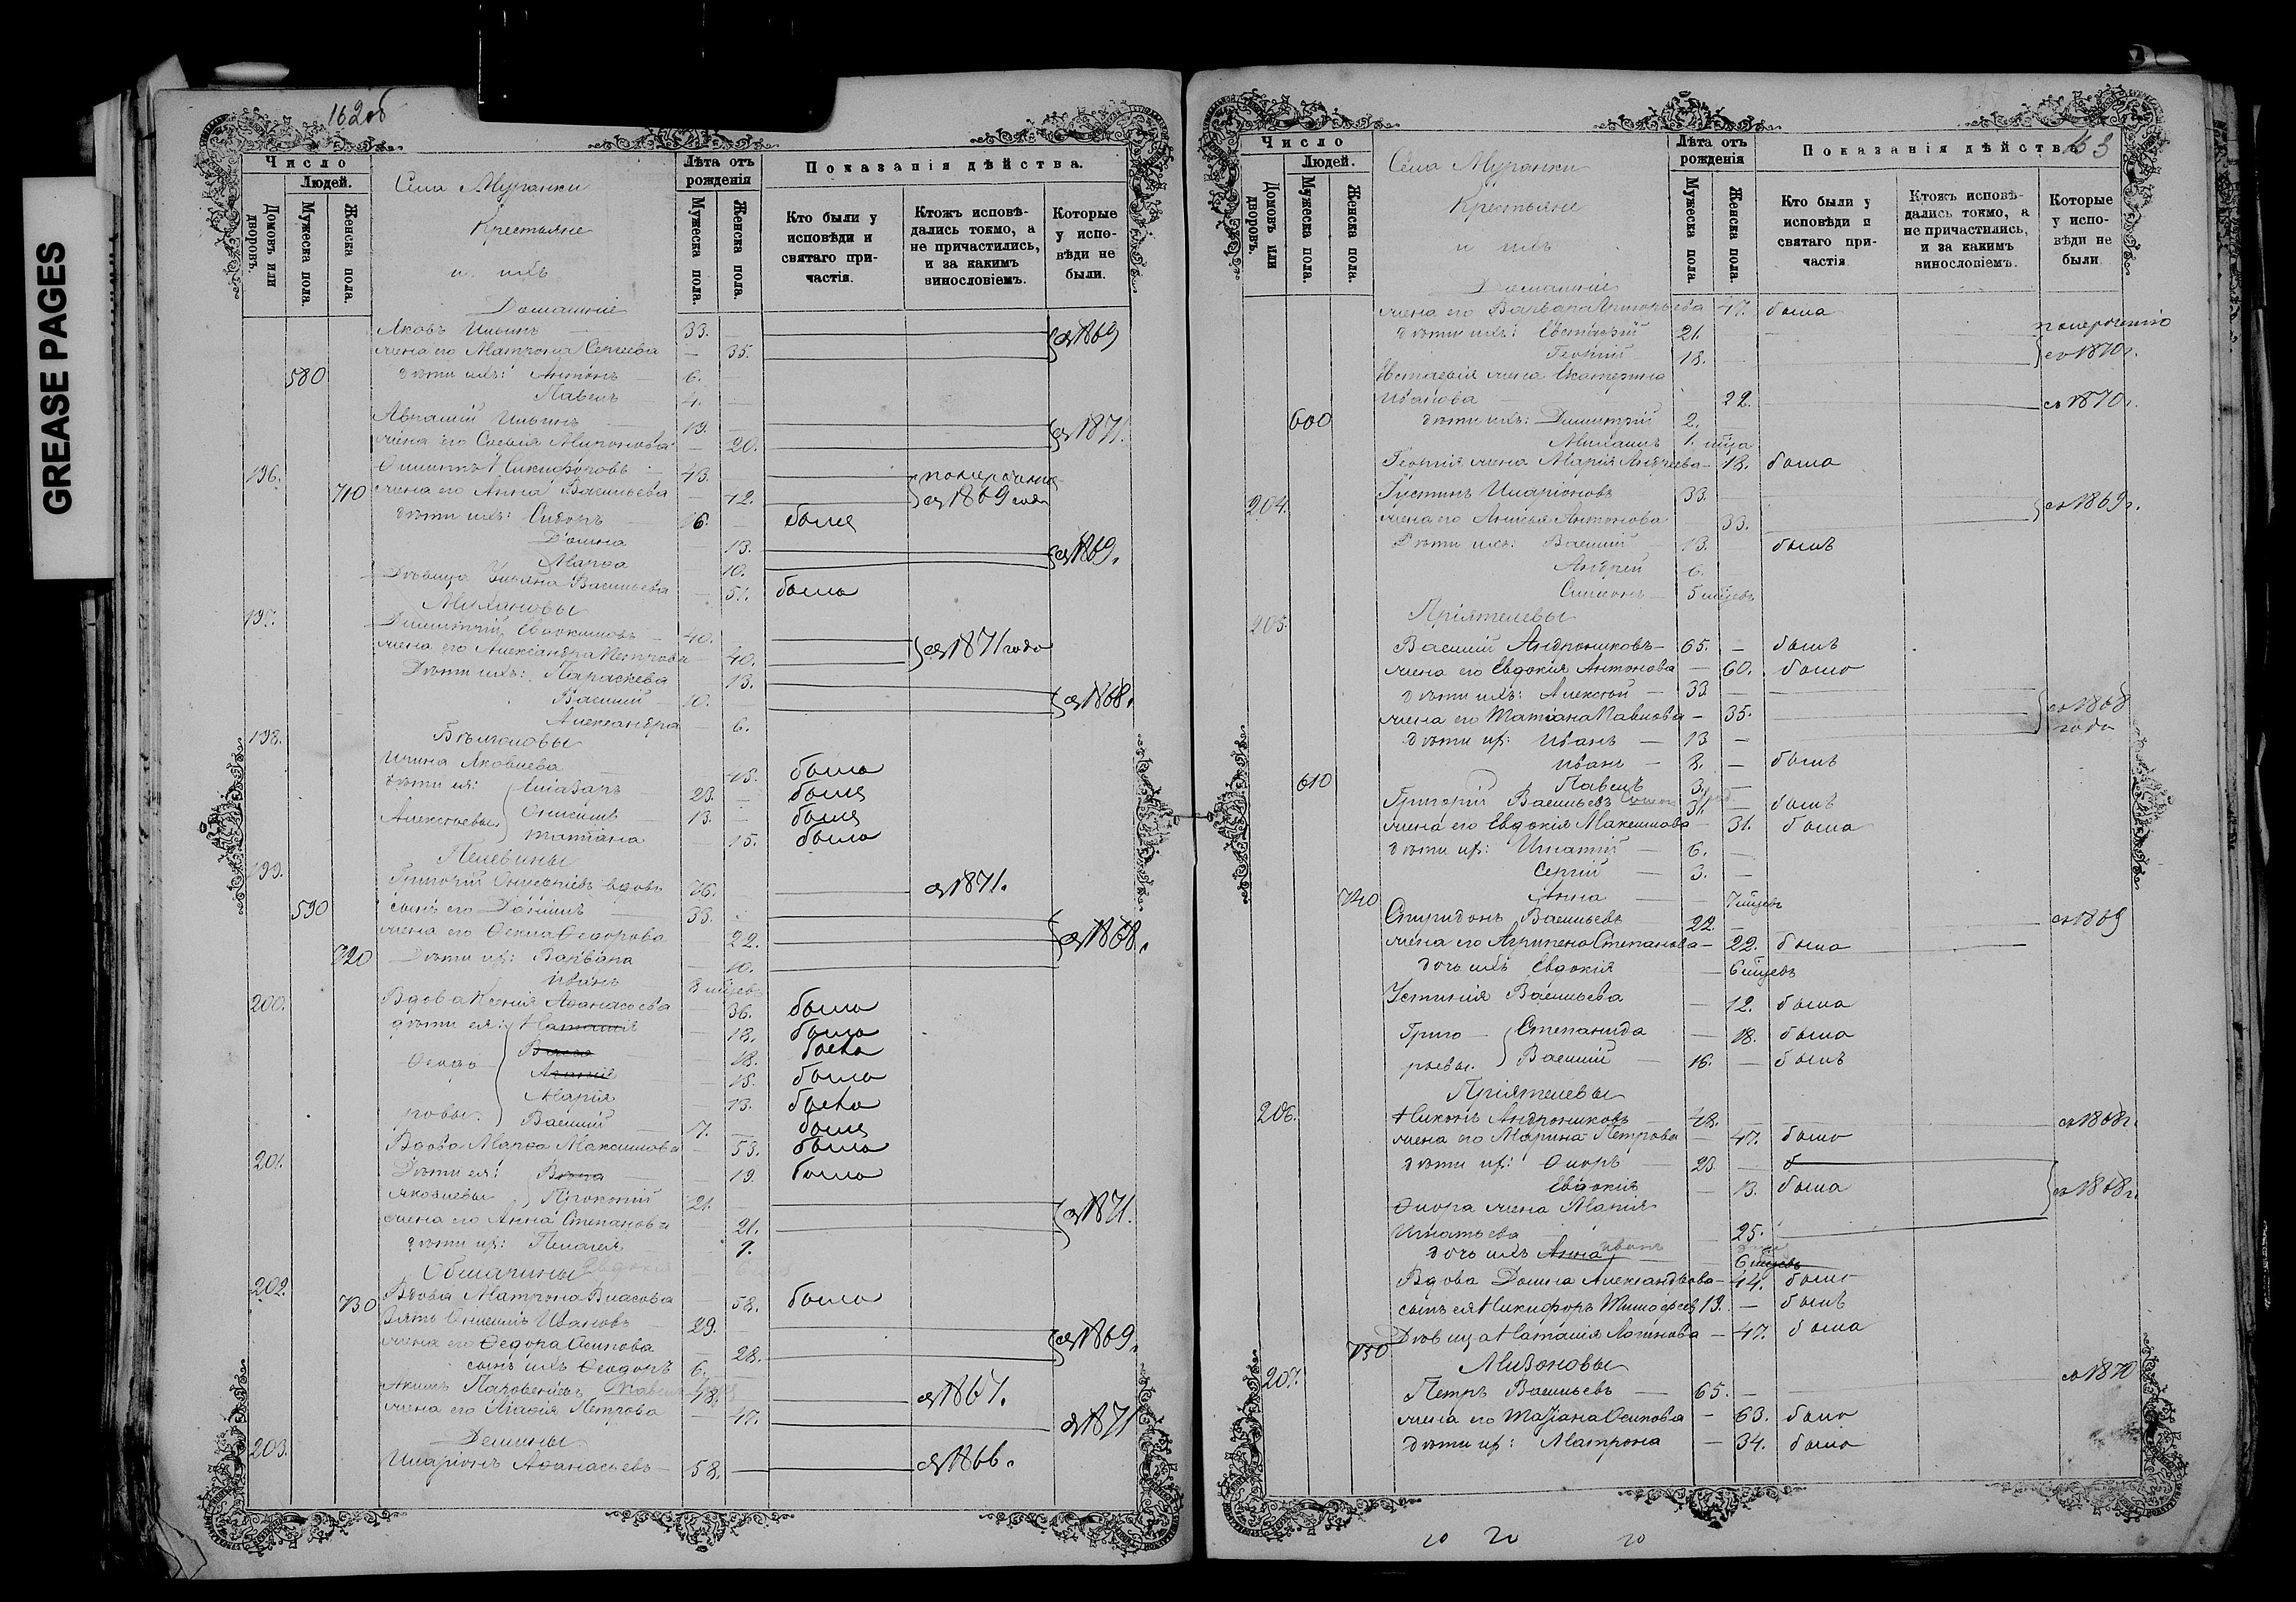 GREASE PAGES
162об
Число
Людей.
Домовъ или дворовъ.
Мужеска пола.
Женска пола.
Села Муранки
Крестьяне
и ихъ
Домашніе
Лѣта отъ рожденія
Мужеска пола.
Женска пола.
Показанія дѣйства.
Кто были у исповѣди и святаго причастія.
Ктожъ исповѣдались токмо, а не причастились, и за какимъ винословіемъ.
Которые у исповѣди не были.
Яковъ Ильинъ 33. съ 1869
жена его Матрона Сергеева — 35.
580 дѣти ихъ: Антонъ 6.
Павелъ 4.
Аврамій Ильинъ 19. съ 1871.
жена его Софія Миронова — 20.
196. Филиппъ Никифоровъ 43.
710 жена его Анна Васильева — 42. съ 1869 года
дѣти ихъ: Сидоръ 16. — былъ
Домна — 13. съ 1869.
Марѳа — 10.
Дѣвица Ульяна Васильева — 51. была
197. Милановы
Димитрій Евдокимовъ 40. съ 1871 года
жена его Александра Петрова 40.
Дѣти ихъ: Параскева 13.
Василий 10. съ 1868.
Александра 6.
198.
Ирина Яковлева 45. была
дѣти ея: Елизаръ 23. — былъ
Алексѣевы Онисимъ 13. — былъ
Татіана — 15. была
199. Пелевины
Григорій вдовъ 76. съ 1871.
590 сынъ его Даниилъ 33.
жена его Ѳекла Ѳедорова 22. съ 1868.
720 Дѣти их: Варвара — 10.
Иванъ 8 мѣсцевъ
200. Вдова Ксенія Аѳанасьева — 36. была
дѣти ея: Наталія — 18. была
Ѳеодо — 18. была
— 15. была
Марія — 13. была
ровы. Василий 7. — былъ
201. Вдова Марѳа Максимова — 53. была
Дѣти ея: Вѣра — 19. была
Яковлевы Прокопій 21. —
жена его Анна Степанова 21. съ 1871.
дѣти их: Пелагея 9.
Обшарины Евдокія
202.
730 Вдова Матрона Власова — 58. была
Зять Онисимъ Ивановъ 29. —
жена его Ѳедора Осипова — 28. съ 1869.
сынъ ихъ Ѳеодоръ 6.
Акимъ 48. съ 1867.
жена его Агафія Петрова — 47. съ 1871
203. Демины
Иларіонъ Аѳанасьевъ 58. — съ 1866.
Число
Людей.
Домовъ или дворовъ.
Мужеска пола.
Женска пола.
Села Муранки
Крестьяне
и ихъ
Домашніе
Лѣта отъ рожденія
Мужеска пола.
Женска пола.
Показанія дѣйства
Кто были у исповѣди и святаго причастія
Ктожъ исповѣдались токмо, а не причастились, и за какимъ винословіемъ.
Которые у исповѣди не были
жена его Варвара Григорьева 47. была
дѣти ихъ: Евстафій 21.
Георгій 18. — съ 1870г.
Евстафія жена Екатерина
Иванова 22. съ 1870г.
600 дѣти ихъ: Димитрій 2.
Михаилъ 1. мѣсца
Георгія жена Марія Андреева — 18. была
204. Густинъ Иларіоновъ 33. съ 1869г.
жена его Анисья Антонова 33.
Дѣти ихъ: Василий 13. былъ
Андрей 6.
Симеонъ 5 мѣсцевъ
205. Пріятелевы
Василий Андрониковъ — 65. — былъ
жена его Евдокія Антонова — 60. была
дѣти ихъ: Алексѣй — 33 —
жена его Татіана Павлова — 35. съ 1868 года
дѣти их: Иванъ — 13 —
Иванъ — 8. — былъ
610 Павелъ 3. —
Григорій Васильевъ 31. — былъ
жена его Евдокія Максимова — 31. была
дѣти их: Игнатій — 6. —
Сергій — 3. —
740 Анна — 7 мѣсцевъ
Спиридонъ Васильевъ 22. — съ 1869
жена его Агрипена Степанова — 22. была
дочь ихъ Евдокія — 6 мѣсцевъ
Устинія Васильева — 12. была
Григо — Степанида — 18. была
рьевы. Василий — 16. — былъ
Пріятелевы
206. Никонъ Андрониковъ — 48. — съ 1868г.
жена его Марина Петрова — 47. была
дѣти их: Ѳиоръ — 23 —
Евдокія — 13. была съ 1868г.
Ѳиора жена Марія
Игнатьева 25.
дочь ихъ Анна Иванъ 6 мѣсцевъ
Вдова Домна Александрова — 44. была
сынъ ея Никифоръ Тимоѳеевъ 19. — былъ
750 Дѣвица Наталія Логинова — 47. была
207. Мизоновы
Петръ Васильевъ — 65. — съ 1870
жена его Татіана Осипова — 63. была
дѣти их: Матрона — 34. была
20 20 20